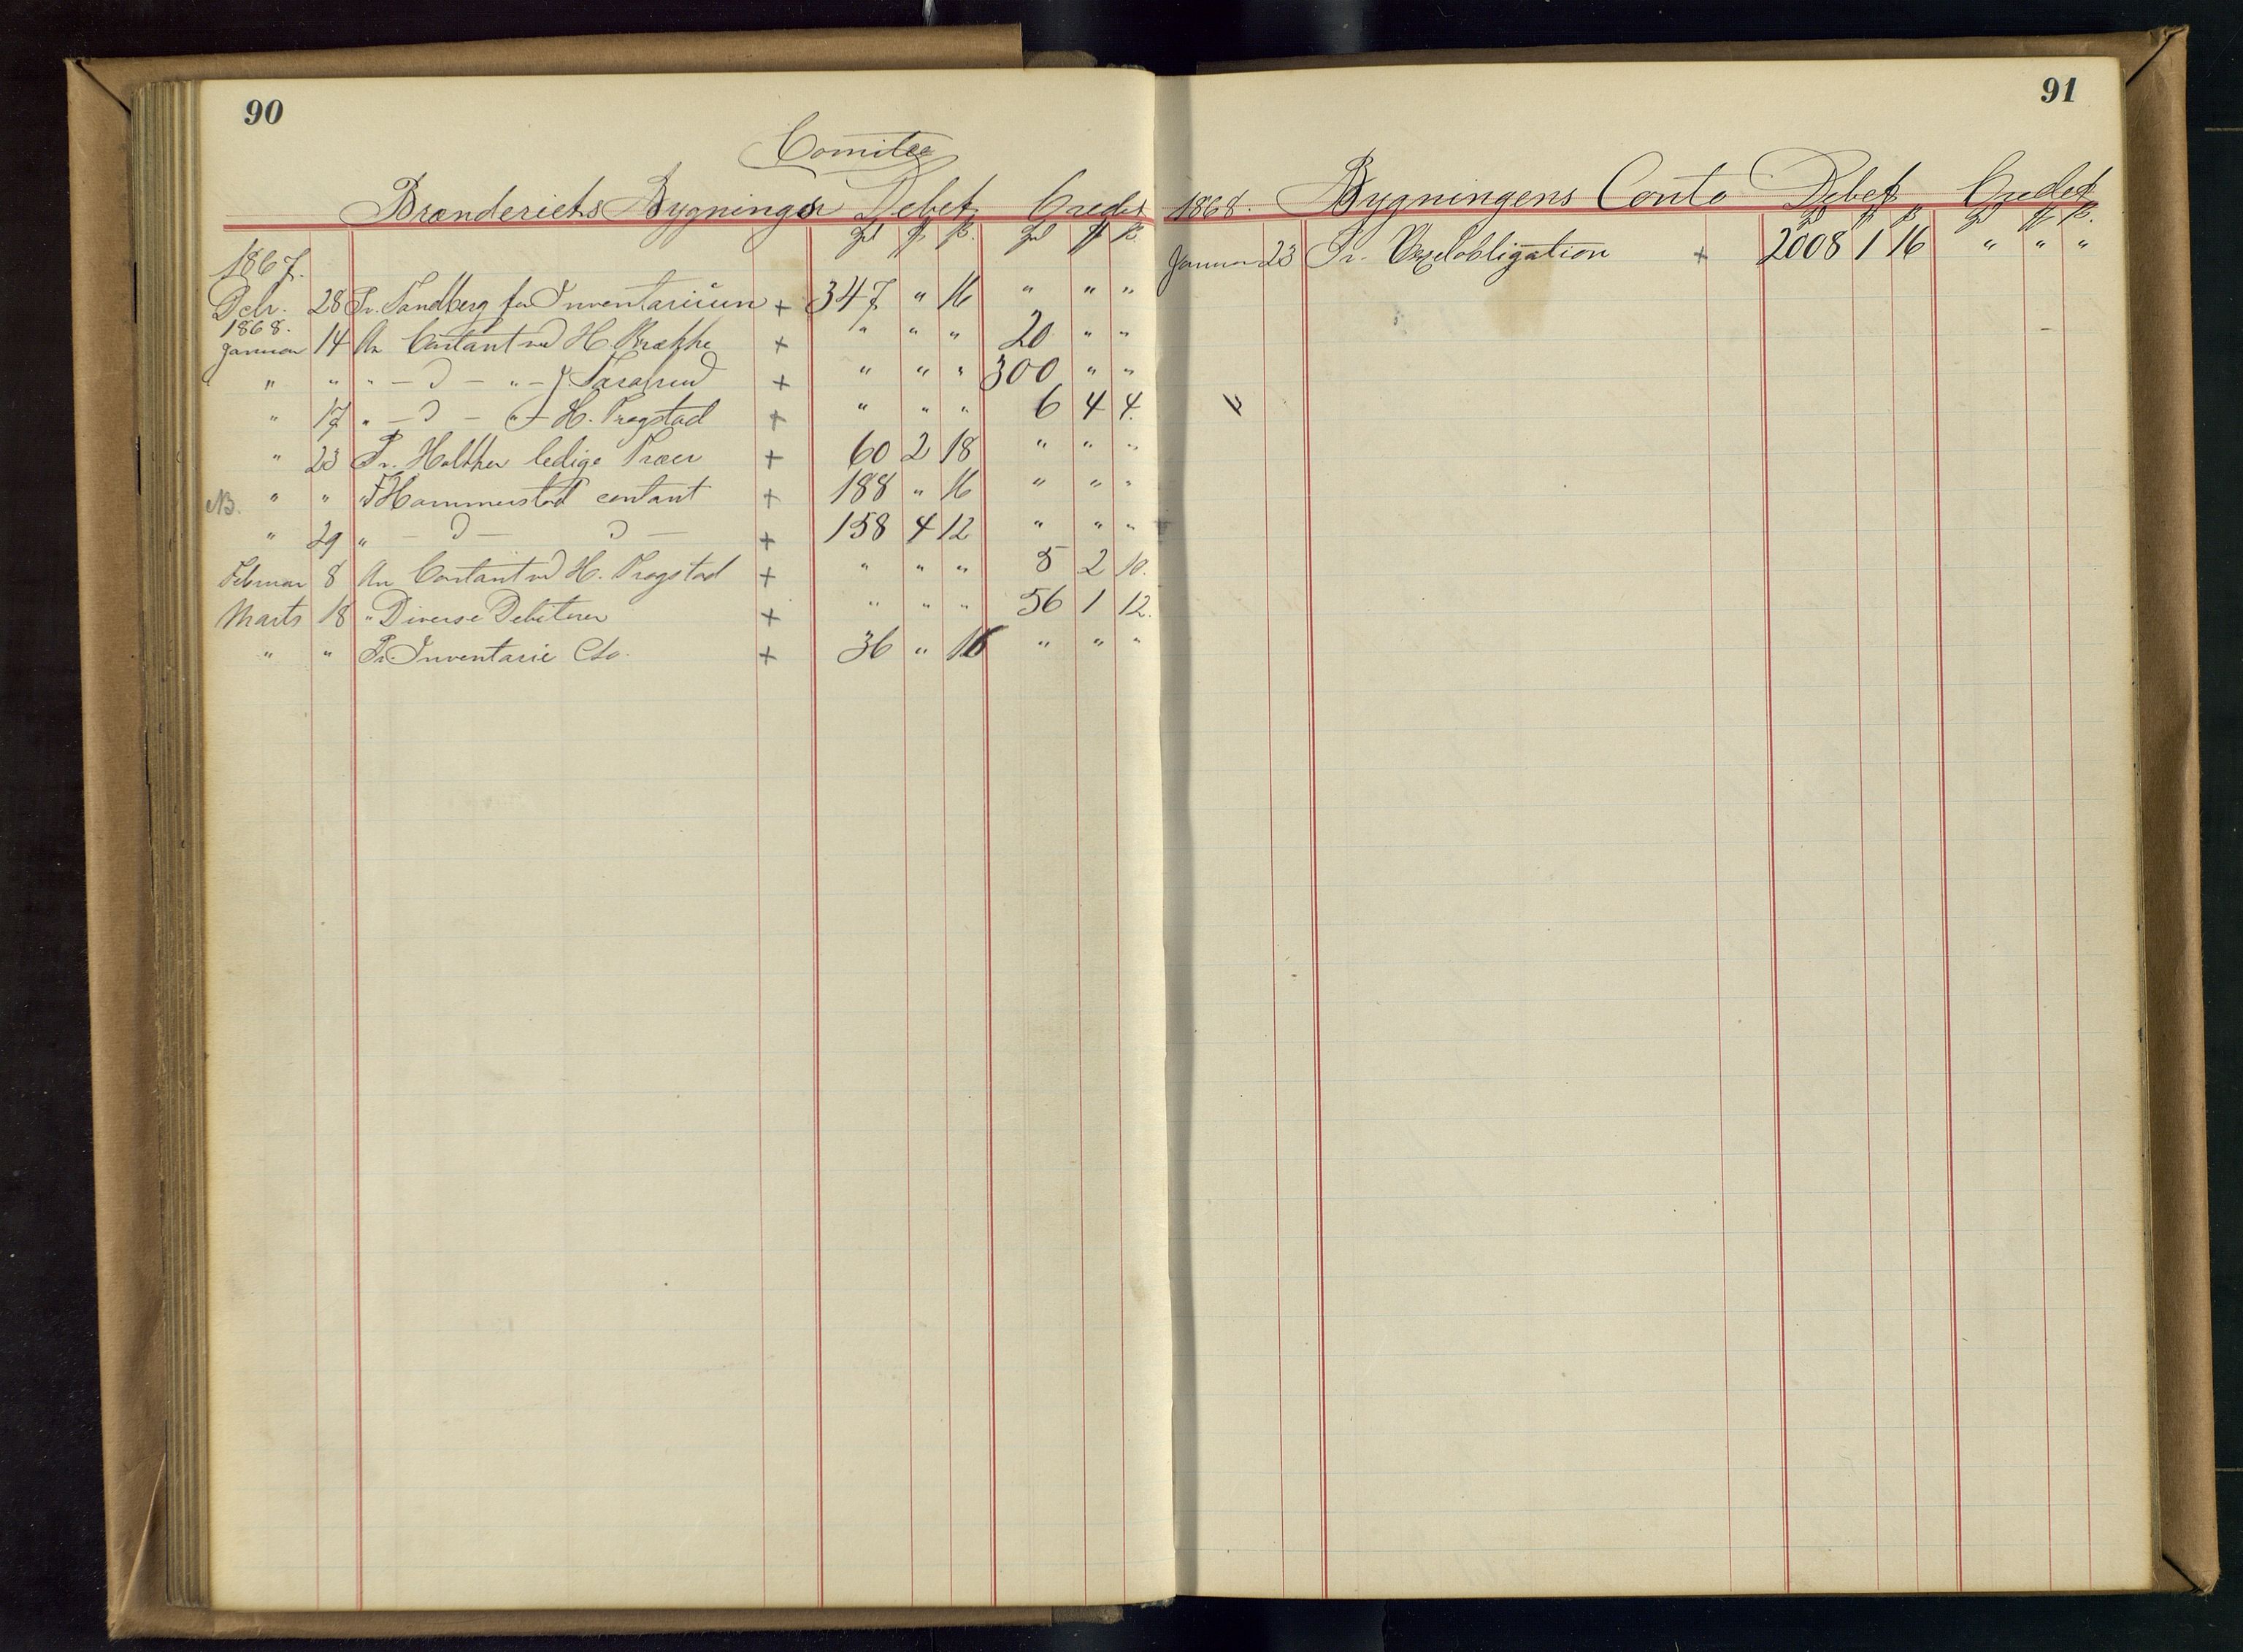 90
Comitee
Brænderiets Bygnings Debet Credit
1867.
Dcbr. 28 Pr. Sandberg for Inventarium + 347 " 16 " " "
1868.
Januar 14 An Contant ved H. Brække + " " " 20 " "
" " " — D — " — J. + " " " 300 " "
" 17 " — D — " — H. Trogstad + " " " 6 4 4.
" 23 Pr. Holther ledige Træer + 60 2 18 " " "
NB. " " " Hammerstad contant + 188 " 16 " " "
" 29 " — D — D — + 158 4 12 " " "
Februar 8 An Contant ved H. Trogstad + " " " 5 2 10.
Marts 18 " Diverse Debitorer + " " " 56 1 12.
" " Pr. Inventarie Cto. + 36 " 16 " " "
91
1868. Bygningens Conto Debet Credet
Januar 23 Pr. Vexelobligation + 2008 1 16 " " "